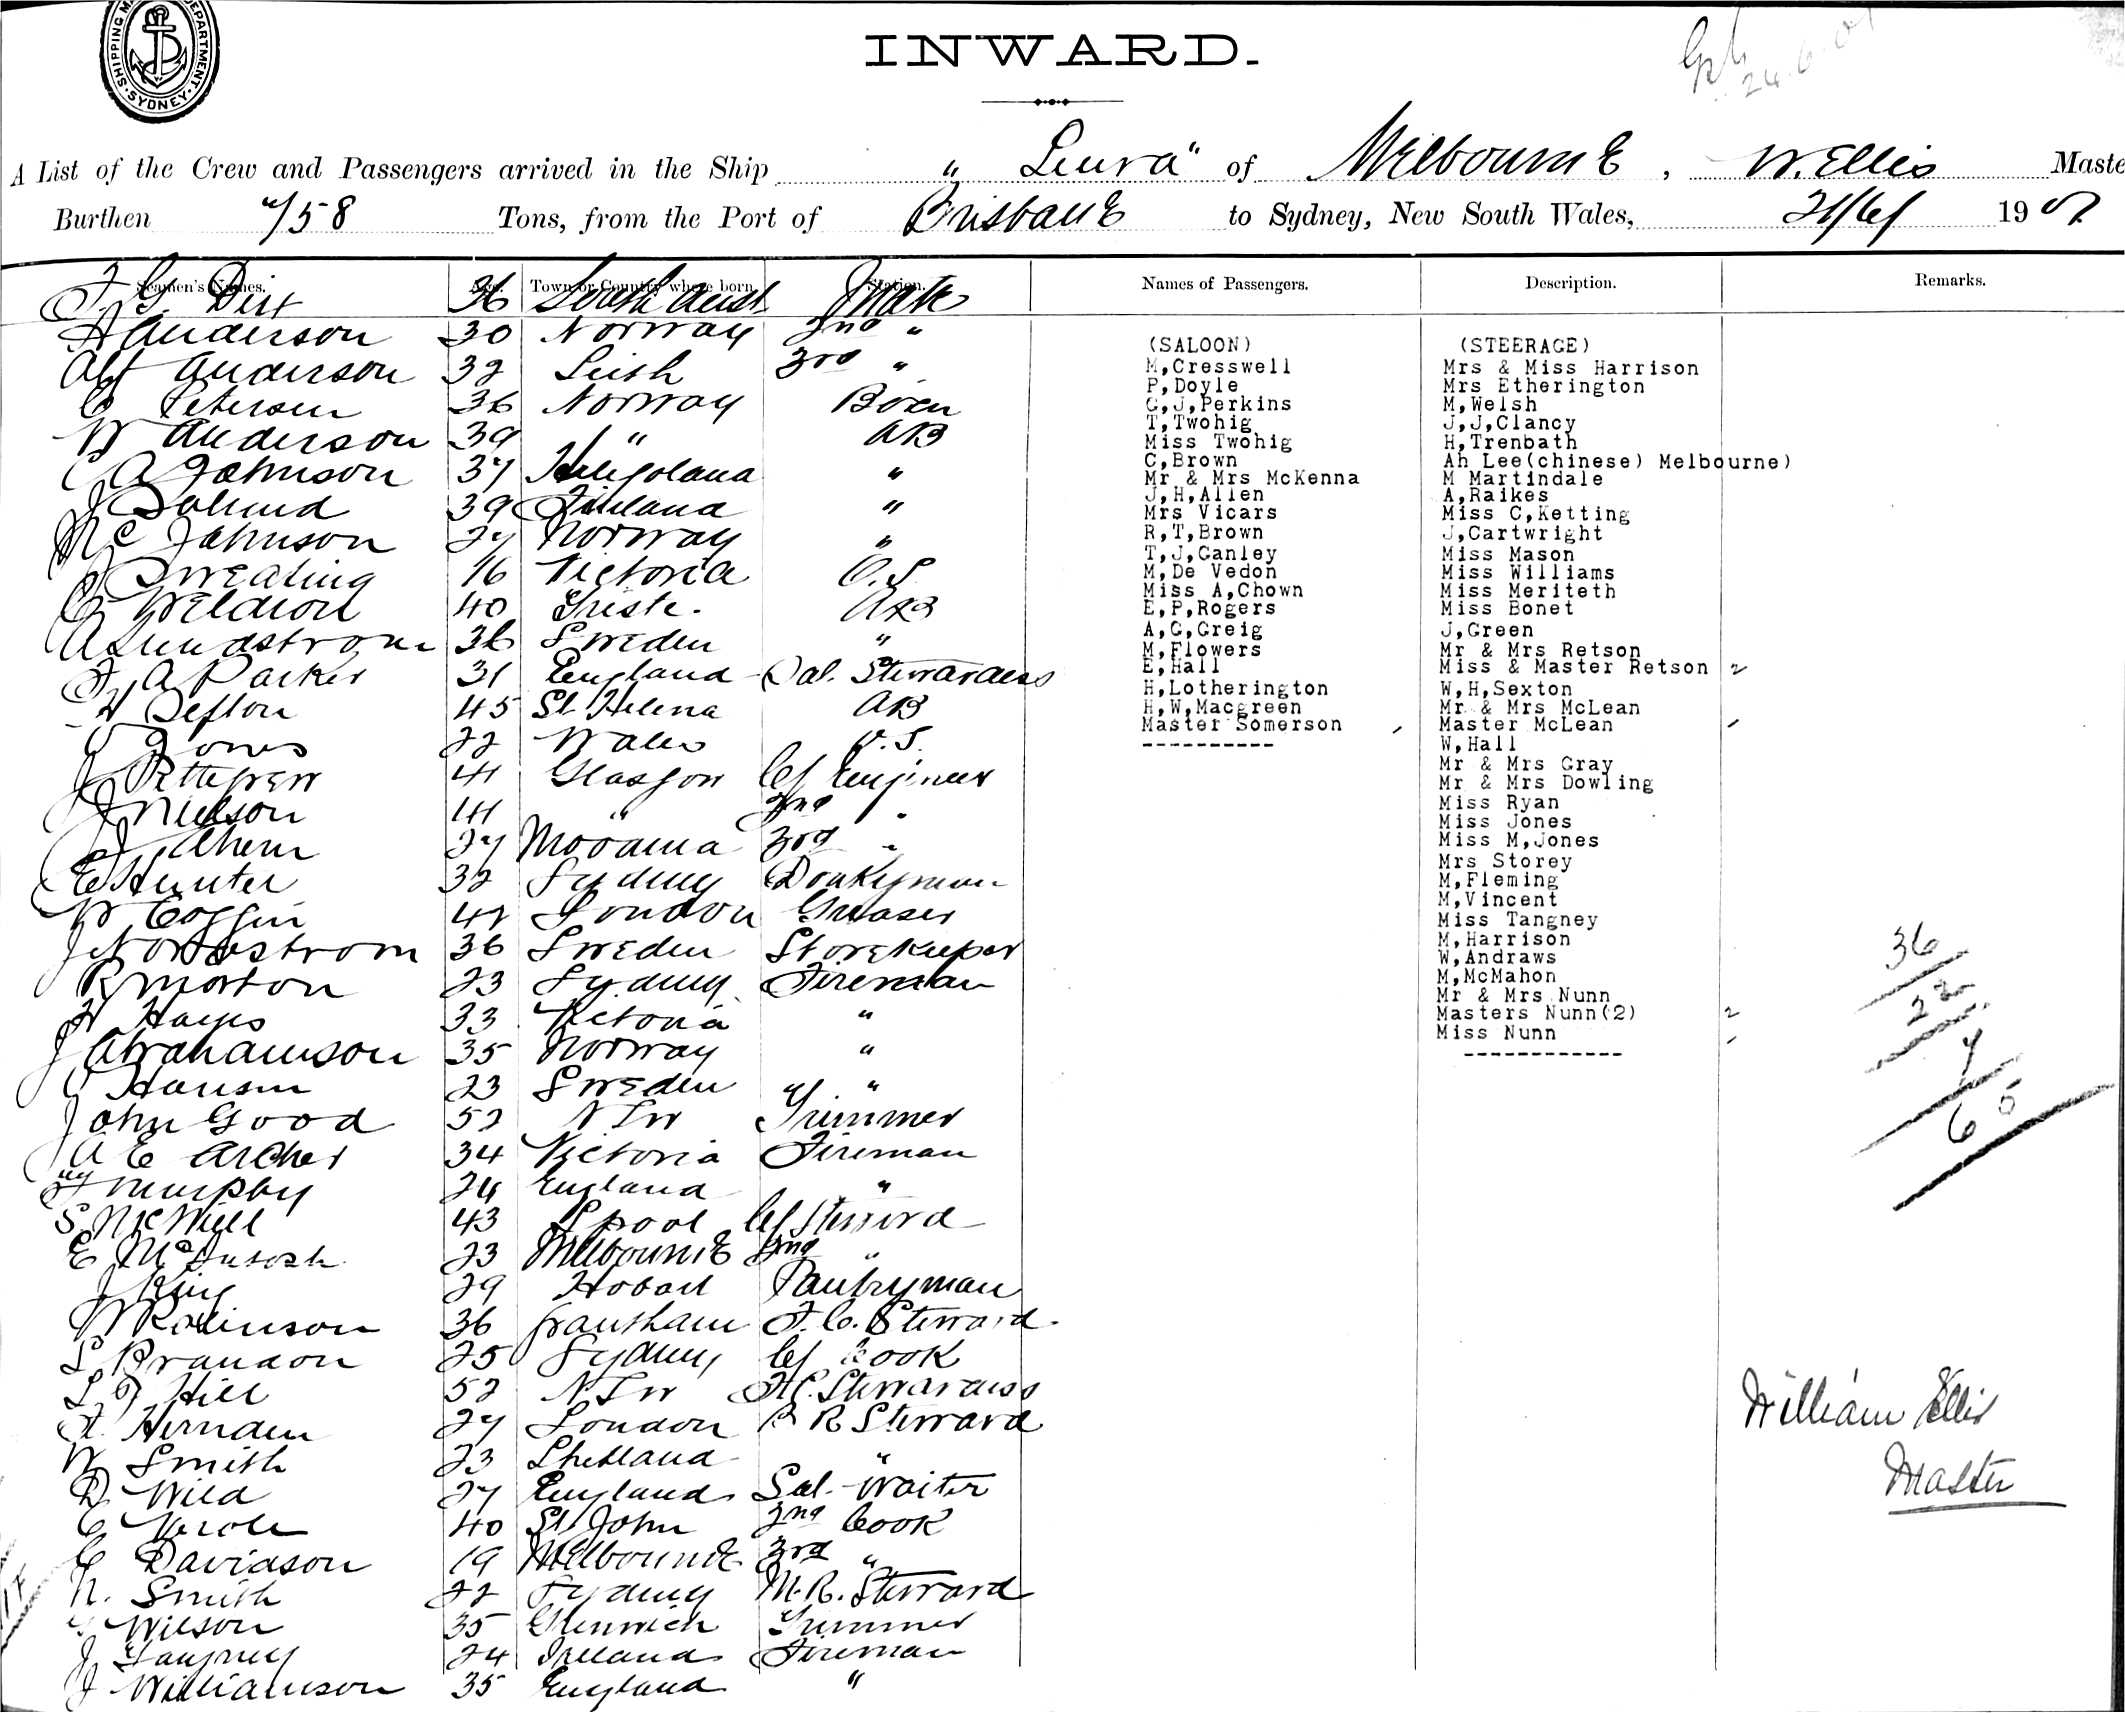 SHIPPING MA DEPARTMENT. SYDNEY.
INWARD.
A List of the Crew and Passengers arrived in the Ship "Leura" of Melbourne, W. Ellis Maste
Burthen Tons, from the Port of Brisbane to Sydney, New South Wales, 19
Seamen's Names. Age. Town or Country where born Station. Names of Passengers. Description. Remarks.
36 South Aust Mate
Anderson 30 Norway 2nd "
Alf Anderson 32 Leith 3rd "
C Petersen 36 Norway Bosn
W Anderson 39 " AB
C A Johnson 37 Heligoland "
J 39 Finland "
Johnson 27 Norway "
16 Victoria O.S
40 Trieste. AB
A Lundstrom 36 Sweden "
A Parker 31 England Sal. Stewardess
H Sefton 45 St Helena AB
Jones 22 Wales O.S.
J Pettigrew 41 Glasgow Cf Engineer
J Nielson 41 " 2nd "
J Ahern 27 Moama 3rd "
E Hunter 32 Sydney Donkeyman
W Coffin 42 London Greaser
J Nordstrom 36 Sweden Storekeeper
R Morton 23 Sydney Fireman
H Hayes 33 Victoria "
J Abrahamson 35 Norway "
Hansen 23 Sweden "
John Good 52 NSW Trimmer
A E Archer 34 Victoria Fireman
Murphy 24 England "
S McNiell 43 Lpool Cf Steward
E McIntosh 23 Melbourne 2nd "
J King 29 Hobart Pantryman
W Robinson 36 Grantham F.C. Steward
L Brandon 25 Sydney Cf Cook
Hill 52 NSW F.C. Stewardess
Hernden 27 London B R Steward
W Smith 23 Shetland "
D Wild 27 England Sal. Waiter
C 40 St John 2nd Cook
C Davidson 19 Melbourne 3rd "
N. Smith 22 Sydney M.R. Steward
Wilson 35 Trimmer
J Tangney 24 Ireland Fireman
J Williamson 35 England "
(SALOON)
M,Cresswell
P,Doyle
G,J,Perkins
T,Twohig
Miss Twohig
C,Brown
Mr & Mrs McKenna
J,H,Allen
Mrs Vicars
R,T,Brown
T,J,Ganley
M,De Vedon
Miss A,Chown
E,P,Rogers
A,G,Greig
M,Flowers
E,Hall
H,Lotherington
H,W,Macgreen
Master Somerson
----------
(STEERAGE)
Mrs & Miss Harrison
Mrs Etherington
M,Welsh
J,J,Clancy
H,Trenbath
Ah Lee(chinese) Melbourne)
M Martindale
A,Raikes
Miss C,Ketting
J,Cartwright
Miss Mason
Miss Williams
Miss Meriteth
Miss Bonet
J,Green
Mr & Mrs Retson
Miss & Master Retson 2
W,H,Sexton
Mr & Mrs McLean
Master McLean
W,Hall
Mr & Mrs Gray
Mr & Mrs Dowling
Miss Ryan
Miss Jones
Miss M,Jones
Mrs Storey
M,Fleming
M,Vincent
Miss Tangney
M,Harrison
W,Andraws
M,McMahon
Mr & Mrs Nunn
Masters Nunn(2) 2
Miss Nunn
------------
36
22
7
65
William Ellis
Master